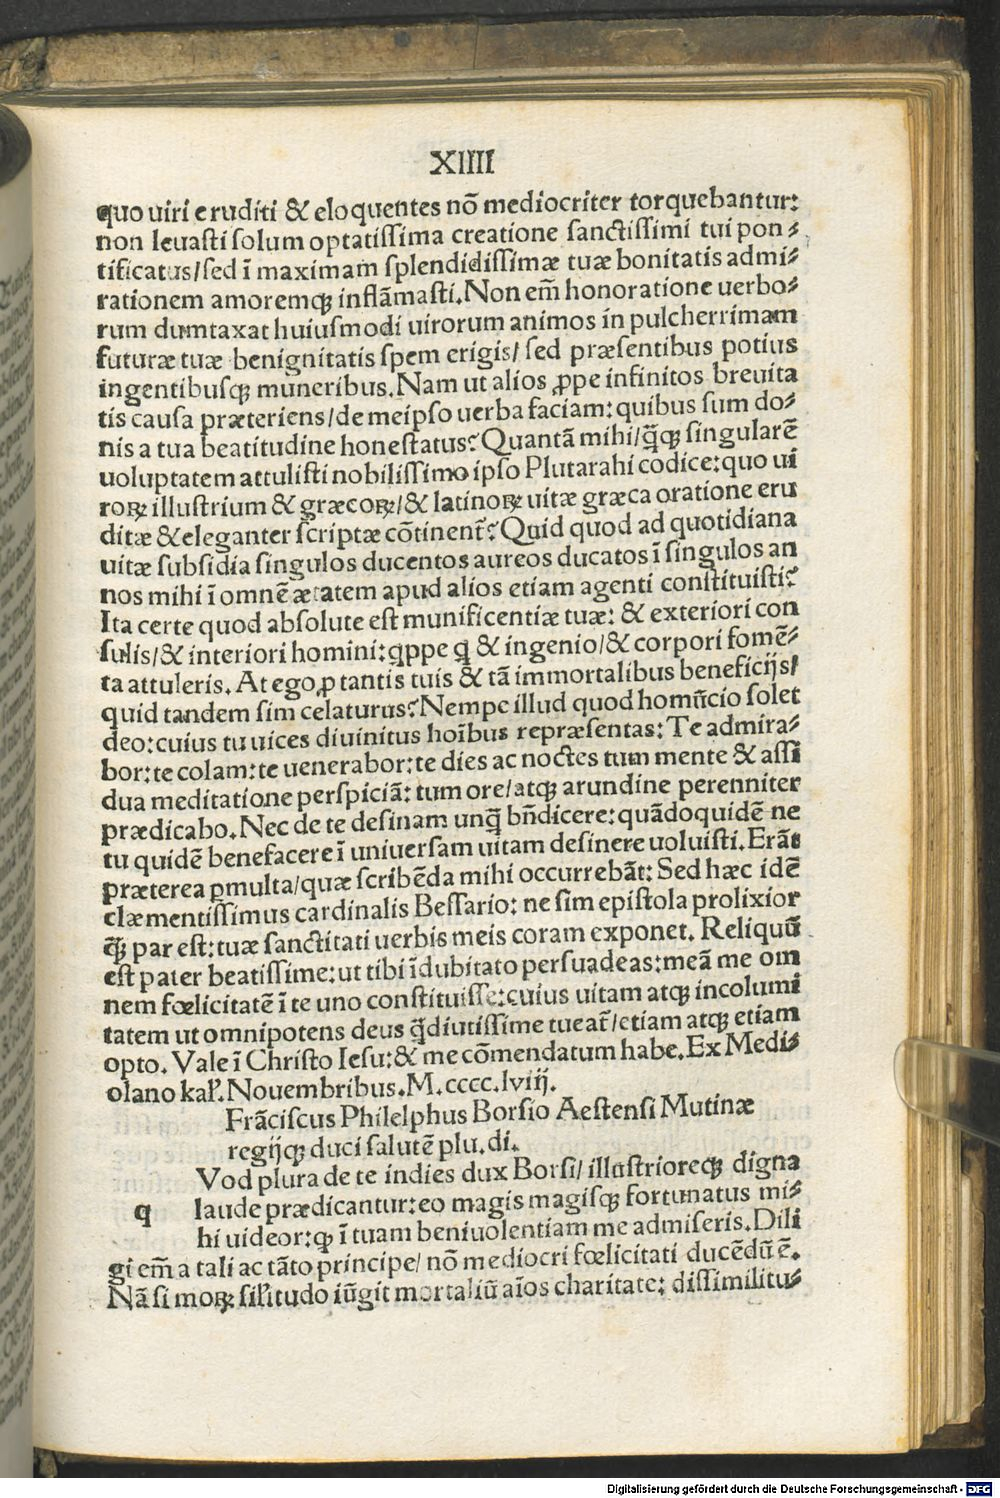 XIIII
quo uiri eruditi & eloquentes nō mediocriter torquebantur:
non leuasti solum optatissima creatione sanctissimi tui pon⸗
tificatus/sed ī maximam splendidissimæ tuæ bonitatis admi⸗
rationem amoremqꝫ inflāmasti. Non em̄ honoratione uerbo⸗
rum dumtaxat huiusmodi uirorum animos in pulcherrimam
futuræ tuæ benignitatis spem erigis/ sed præsentibus potius
ingentibusqꝫ muneribus. Nam ut alios ꝓpe infinitos breuita
tis causa præteriens/de meipso uerba faciam: quibus sum do⸗
nis a tua beatitudine honestatus? Quantā mihi/q̄qꝫ singularē
uoluptatem attulisti nobilissimo ipso Plutarahi codice: quo ui
roꝝ illustrium & græcoꝝ/& latinoꝝ uitæ græca oratione eru
ditæ & eleganter scriptæ cōtinent᷑? Quid quod ad quotidiana
uitæ subsidia singulos ducentos aureos ducatos ī singulos an
nos mihi ī omnē ætatem apud alios etiam agenti constituisti?
Ita certe quod absolute est munificentiæ tuæ: & exteriori con
sulis/& interiori homini: qppe q̨ & ingenio/& corpori fomē⸗
ta attuleris. At ego ꝓ tantis tuis & tā immortalibus beneficijs/
quid tandem sim celaturus? Nempe illud quod homūcio solet
deo: cuius tu uices diuinitus hoībus repræsentas: Te admira⸗
bor: te colam: te uenerabor: te dies ac noctes tum mente & assi
dua meditatione perspiciā: tum ore/atqꝫ arundine perenniter
prædicabo. Nec de te desinam unq̄ bn̄dicere: quādoquidē ne
tu quidē benefacere ī uniuersam uitam desinere uoluisti. Erāt
præterea ꝑmulta/quæ scribēda mihi occurrebāt: Sed hæc idē
clæmentissimus cardinalis Bessario: ne sim epistola prolixior
q̄ꝫ par est: tuæ sanctitati uerbis meis coram exponet. Reliquū
est pater beatissime: ut tibi īdubitato persuadeas: meā me om
nem fœlicitatē ī te uno constituisse: cuius uitam atqꝫ incolumi
tatem ut omnipotens deus q̄diutissime tueat᷑/etiam atqꝫ etiam
opto. Vale ī Christo Iesu: & me cōmendatum habe. Ex Medi⸗
olano kal᷑. Nouembribus. M. cccc. lviij.
Frāciscus Philelphus Borsio Aestensi Mutinæ
regijqꝫ duci salutē plu. di.
Vod plura de te indies dux Borsi/ illustrioreqꝫ digna
q laude prædicantur: eo magis magisqꝫ fortunatus mi⸗
hi uideor: qꝫ ī tuam beniuolentiam me admiseris. Dili
gi em̄ a tali ac tāto principe/ nō mediocri fœlicitati ducēdū ē.
Nā si moꝝ sil᷑itudo iūgit mortaliū aīos charitate: dissimilitu⸗
Digitalisierung gefördert durch die Deutsche Forschungsgemeinschaft - DFG